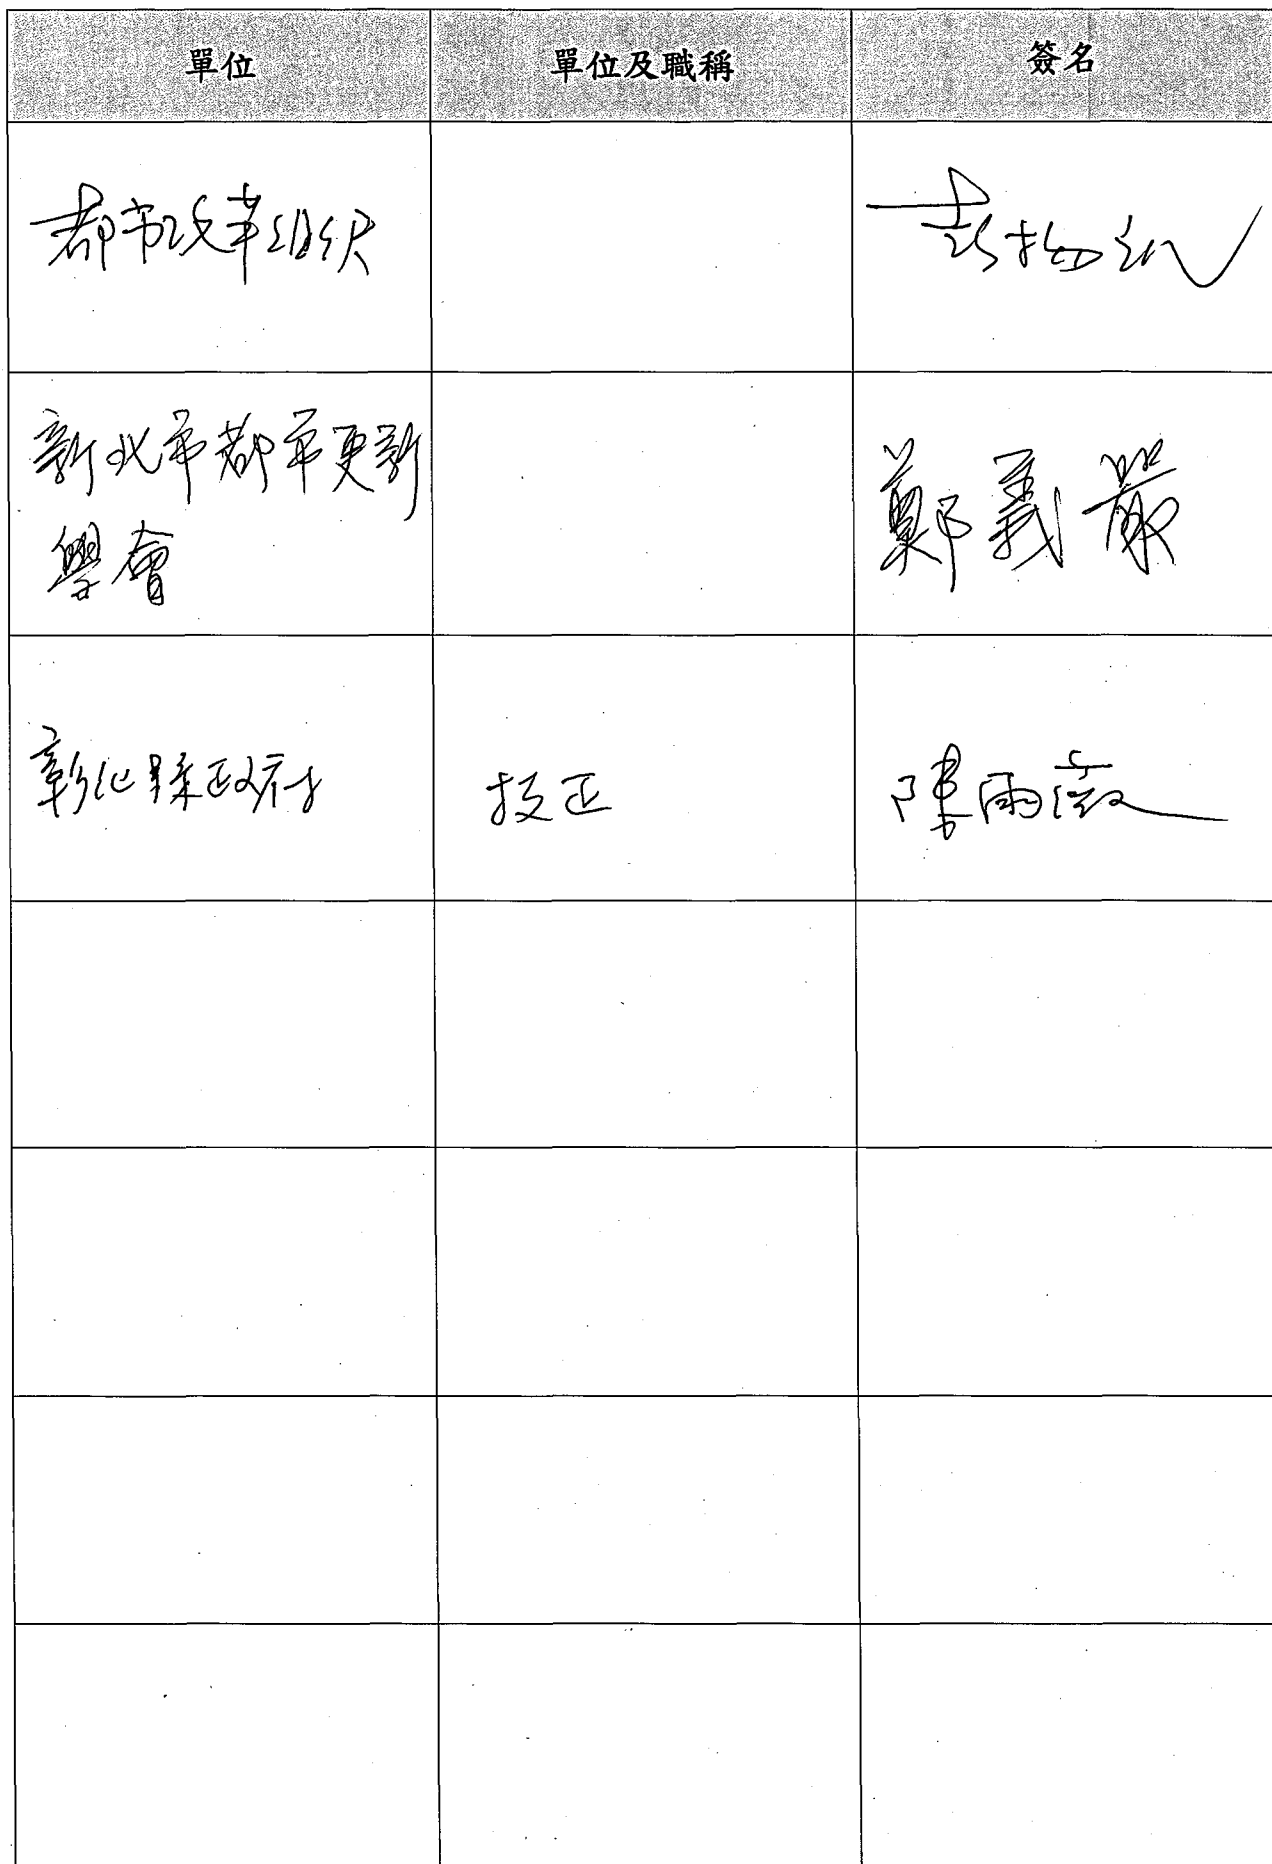 單位 單位及職稱 簽名
都市改革組織 彭揚凱
新北市都市更新 鄭義嚴
學會
彰化縣政府 技正 陳雨薇